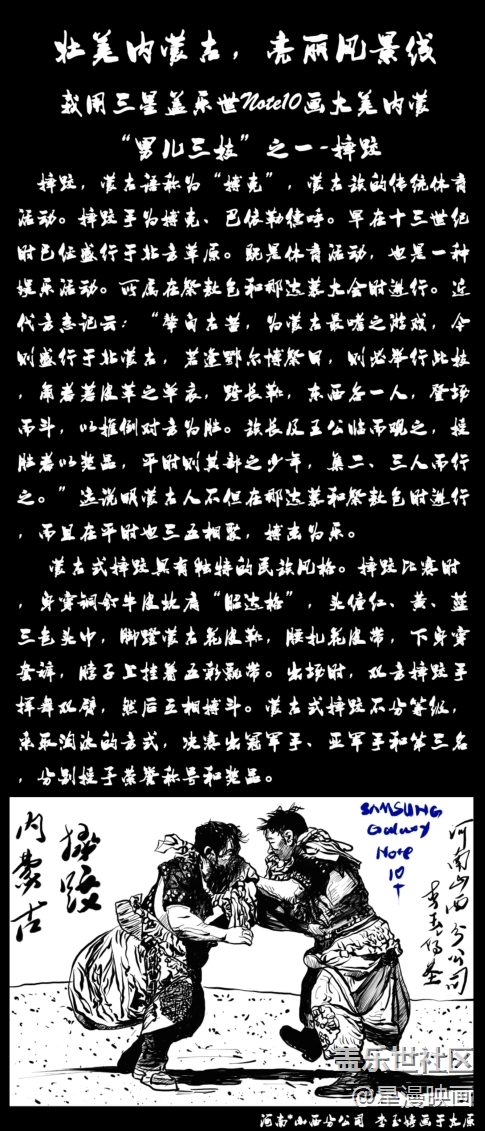 壮美内蒙古，亮丽风景线
我用三星盖乐世Note10画大美内蒙
“男儿三技”之一-摔跤
摔跤，蒙古语称为“搏克”，蒙古族的传统体育
活动。摔跤手为搏克、巴依勒德呼。早在十三世纪
时已经盛行于北方草原。既是体育活动，也是一种
娱乐活动。所属在祭敖包和那达慕大会时进行。近
代方志记云：“肇自古昔，为蒙古最嗜之游戏，今
则盛行于北蒙古，若逢鄂尔博祭日，则必举行此技
，角者着皮革之单衣，跨长靴，东西各一人，登场
而斗，以推倒对方为胜。族长及王公临而观之，授
胜者以奖品，平时则其部之少年，集二、三人而行
之。”这说明蒙古人不但在那达慕和祭敖包时进行
，而且在平时也三五相聚，搏击为乐。
蒙古式摔跤具有独特的民族风格。摔跤比赛时
，身穿铜钉牛皮坎肩“昭达格”，头缠红、黄、蓝
三色头巾，脚蹬蒙古花皮靴，腰扎花皮带，下身穿
套裤，脖子上挂着五彩飘带。出场时，双方摔跤手
挥舞双臂，然后互相搏斗。蒙古式摔跤不分等级，
采取淘汰的方式，决赛出冠军手、亚军手和第三名
，分别授予荣誉称号和奖品。
内蒙古
摔跤
SAMSUNG
Galaxy
Note
10
+
河南山西分公司
盖乐世社区
@星漫映画
河南山西分公司 李玉德画于太原